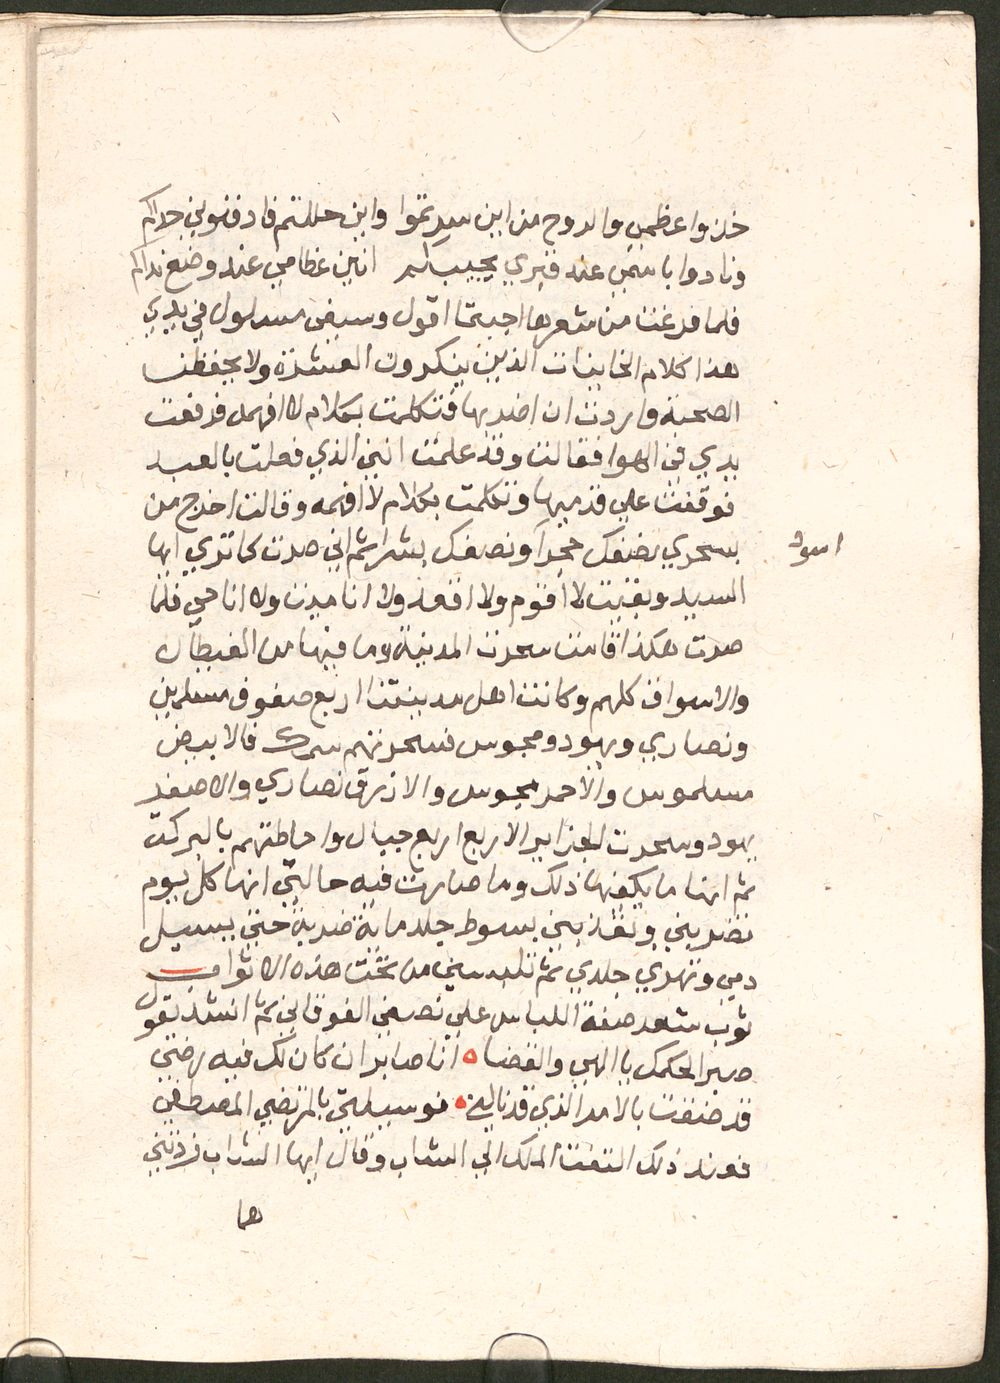 خذوا عظمي والروح من اين سيرتموا واين حللتم فادفنوني حداكم
ونادوا باسمي عند قبري يجيبكم انين عظامي عند وضع نداكم
فلما فرغت من شعرها اجبتها اقول وسيفي مسلول في يدي
هذا كلام الخاينات الذين ينكرون العشرة ولا يحفظن
الصحبة واردت ان اضربها فتكلمت بكلام لا افهمه فرفعت
يدي في الهوا فقالت وقد علمت انني الذي فعلت بالعبد
فوقفت علي قدميها وتكلمت بكلام لا افهمه وقالت اخرج من
بسحري نصفك حجرا ونصفك بشرا ثم اني صرت كما تري ايها
اسود
السيد وبقيت لا اقوم ولا اقعد ولا انا ميت ولا انا حي فلما
صرت هكذا قامت سحرت المدينة وما فيها من الغيطان
والاسواق كلهم وكانت اهل مدينتنا اربع صفوف مسلمين
ونصاري ويهود ومجوس فسحرتهم سمك فالابيض
مسلمون والاحمر مجوس والازرق نصاري والاصفر
يهود وسحرت الجزاير الاربع اربع جبال واحاطتهم بالبركة
ثم انها ما يكفيها ذلك وما صارت فيه حالتي انها كل يوم
تضربني وتعذبني بسوط جلد ماية ضربة حتي يسيل
دمي وتهري جلدي ثم تلبسني من تحت هذه الاثواب
ثوب شعر صفة اللباس علي نصفي الفوقاني ثم انشد يقول
صبرا لحكمك يا الهي والقضا انا صابر ان كان لك فيه رضي
قد ضقت بالامر الذي قد نالني فوسيلتي بالمرتضي المصطفي
فعند ذلك التفت الملك الي الشاب وقال ايها الشاب زدتني
هما